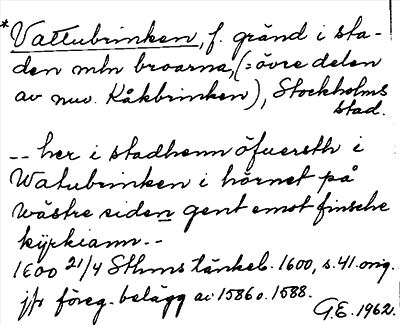 * Vattubrinken, f. gränd i sta-
den mln broarna, (= övre delen
av nuv. Kåkbrinken), Stockholms
stad.
-- her i stadhenn öfuersth i
Watubrinken i hörnet på
wästre siden gent emot finsche
kyrkiann --
1600 21/4 Sthms tänkeb. 1600, s. 41 orig.
jfr föreg. belägg av 1586 o. 1588.
G.E. 1962.